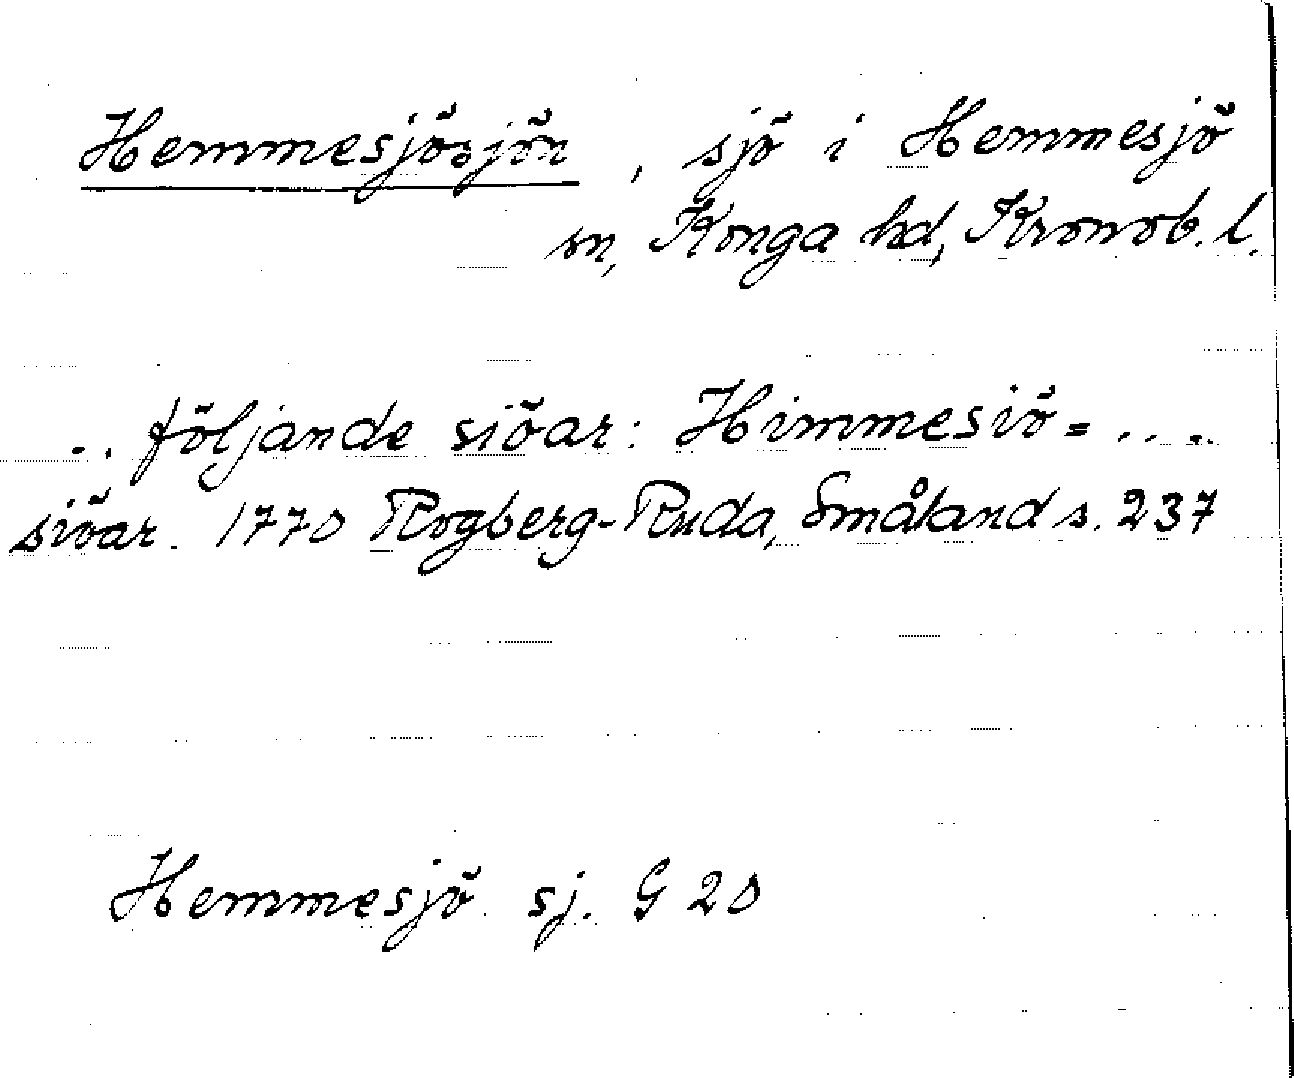 Hemmesjösjön, sjö i Hemmesjö
sn, Konga hd, Kronob. l.
.. följande siöar: Himmesiö= ....
siöar. 1770 Rogberg-Ruda, Småland s. 237
Hemmesjö sj. G 20